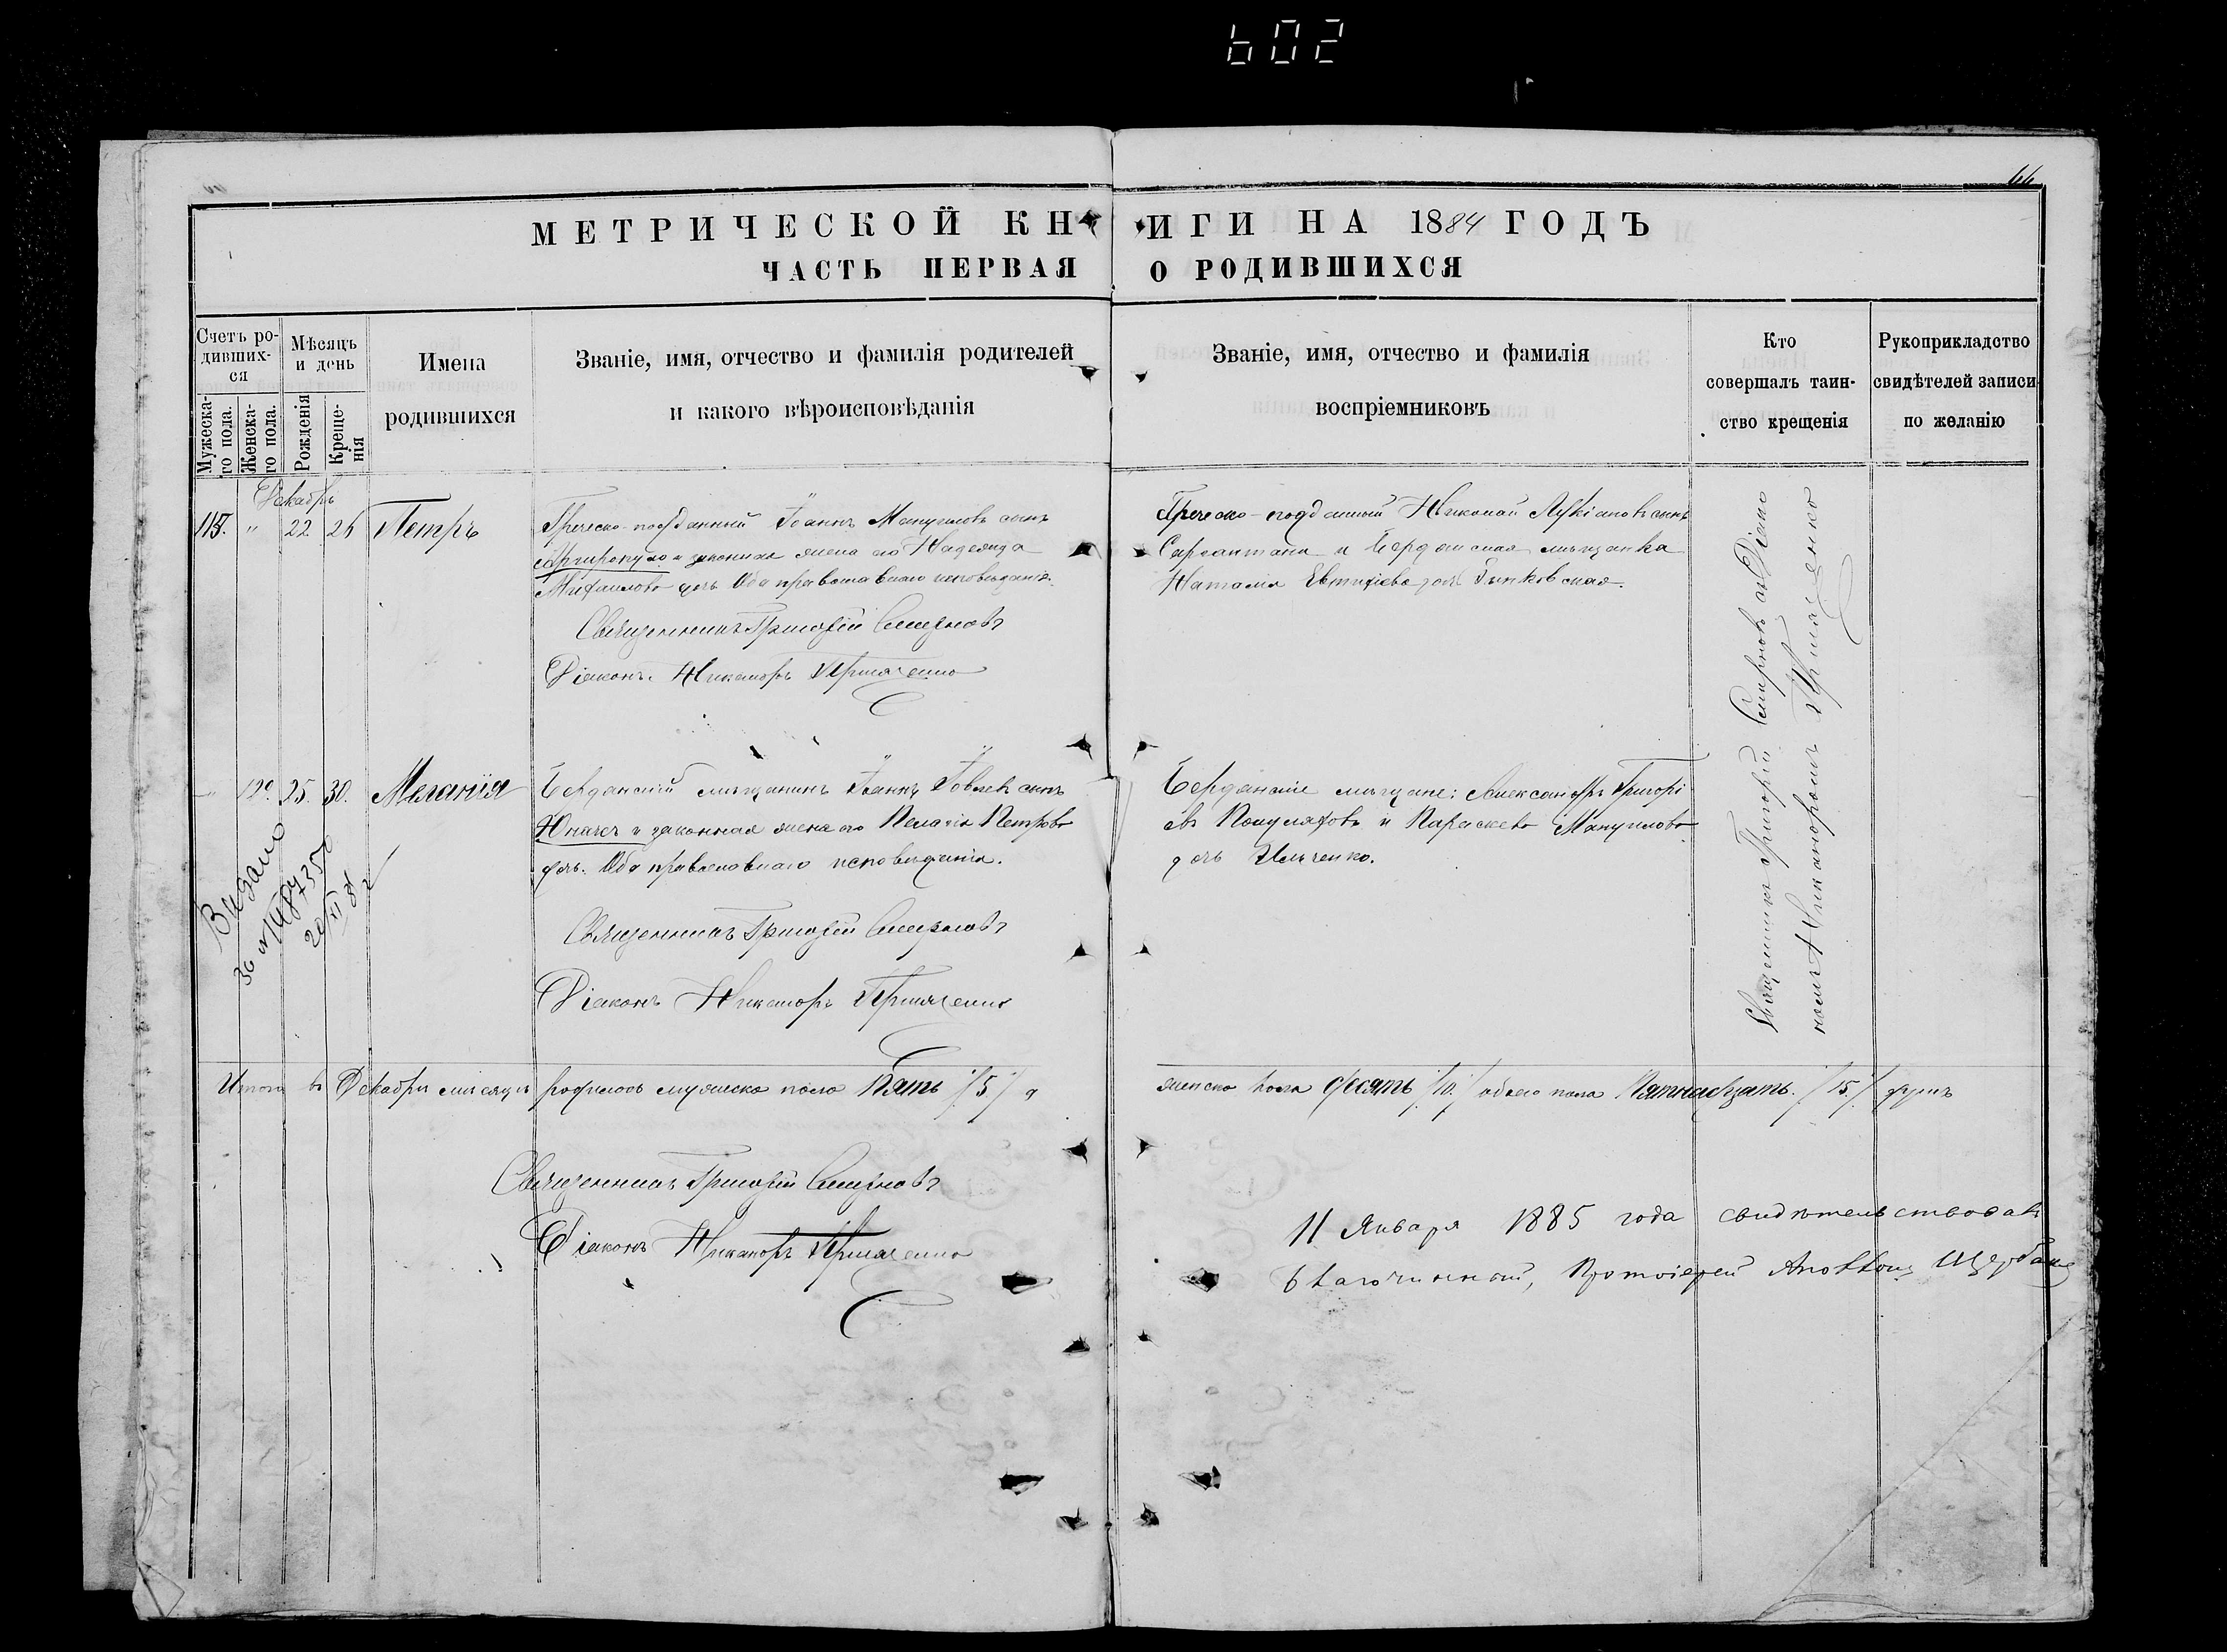 602
66
МЕТРИЧЕСКОЙ КНИГИ НА 1884 ГОДЪ
ЧАСТЬ ПЕРВАЯ О РОДИВШИХСЯ
Счетъ ро-
дивших-
ся
Мужеска-
го пола.
Женска-
го пола.
Мѣсяцъ
и день
Рожденія
Креще-
нія
Имена
родившихся
Званіе, имя, отчество и фамилія родителей
и какого вѣроисповѣданія
Званіе, имя, отчество и фамилія
воспріемниковъ
Кто
совершалъ таин-
ство крещенія
Рукоприкладство
свидѣтелей записи
по желанію
Декабрь
115. " 22 26 Петръ
Греческо-подданный Іоаннъ Мануиловъ сынъ
Аргиропуло и законная жена его Надежда
Михаилова дочь Оба православнаго исповѣданія.
Священникъ Григорій Смирновъ
Діаконъ Никаноръ Примаченко
Греческо-подданный Николай Лукіановъ сынъ
и Бердянская мѣщанка
Наталія Евтихіева дочь
Священникъ Григорій Смирновъ съ Діако
номъ Никаноромъ Примаченко
120. 25. 30. Меланія
Бердянскій мѣщанинъ Іоаннъ Іовлевъ сынъ
и законная жена его Пелагія Петрова
дочь. Оба православнаго исповѣданія.
Священникъ Григорій Смирновъ
Діаконъ Никаноръ Примаченко
Бердянскіе мѣщане: Александръ Григорі
евъ и Параскева Мануилова
дочь Ильченко.
Видано
Итого въ Декабрѣ мѣсяцѣ родилось мужеска пола Пять /5/ и
женска пола десять /10./ обоего пола Пятнадцать. /15./ душъ
Священникъ Григорій Смирновъ
Діаконъ Никаноръ Примаченко
11 Января 1885 года свидѣтельствовалъ
Благочинный, Протоіерей